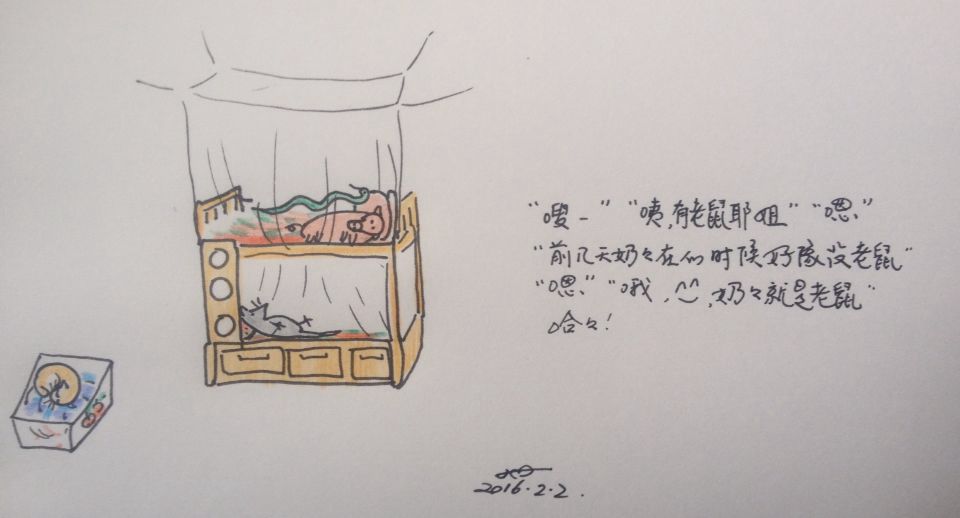 “嗖-” “咦,有老鼠耶姐” “嗯”
“前几天奶々在们时候好像没老鼠”
“嗯” “哦,^^,奶々就是老鼠”
哈々!
2016.2.2.